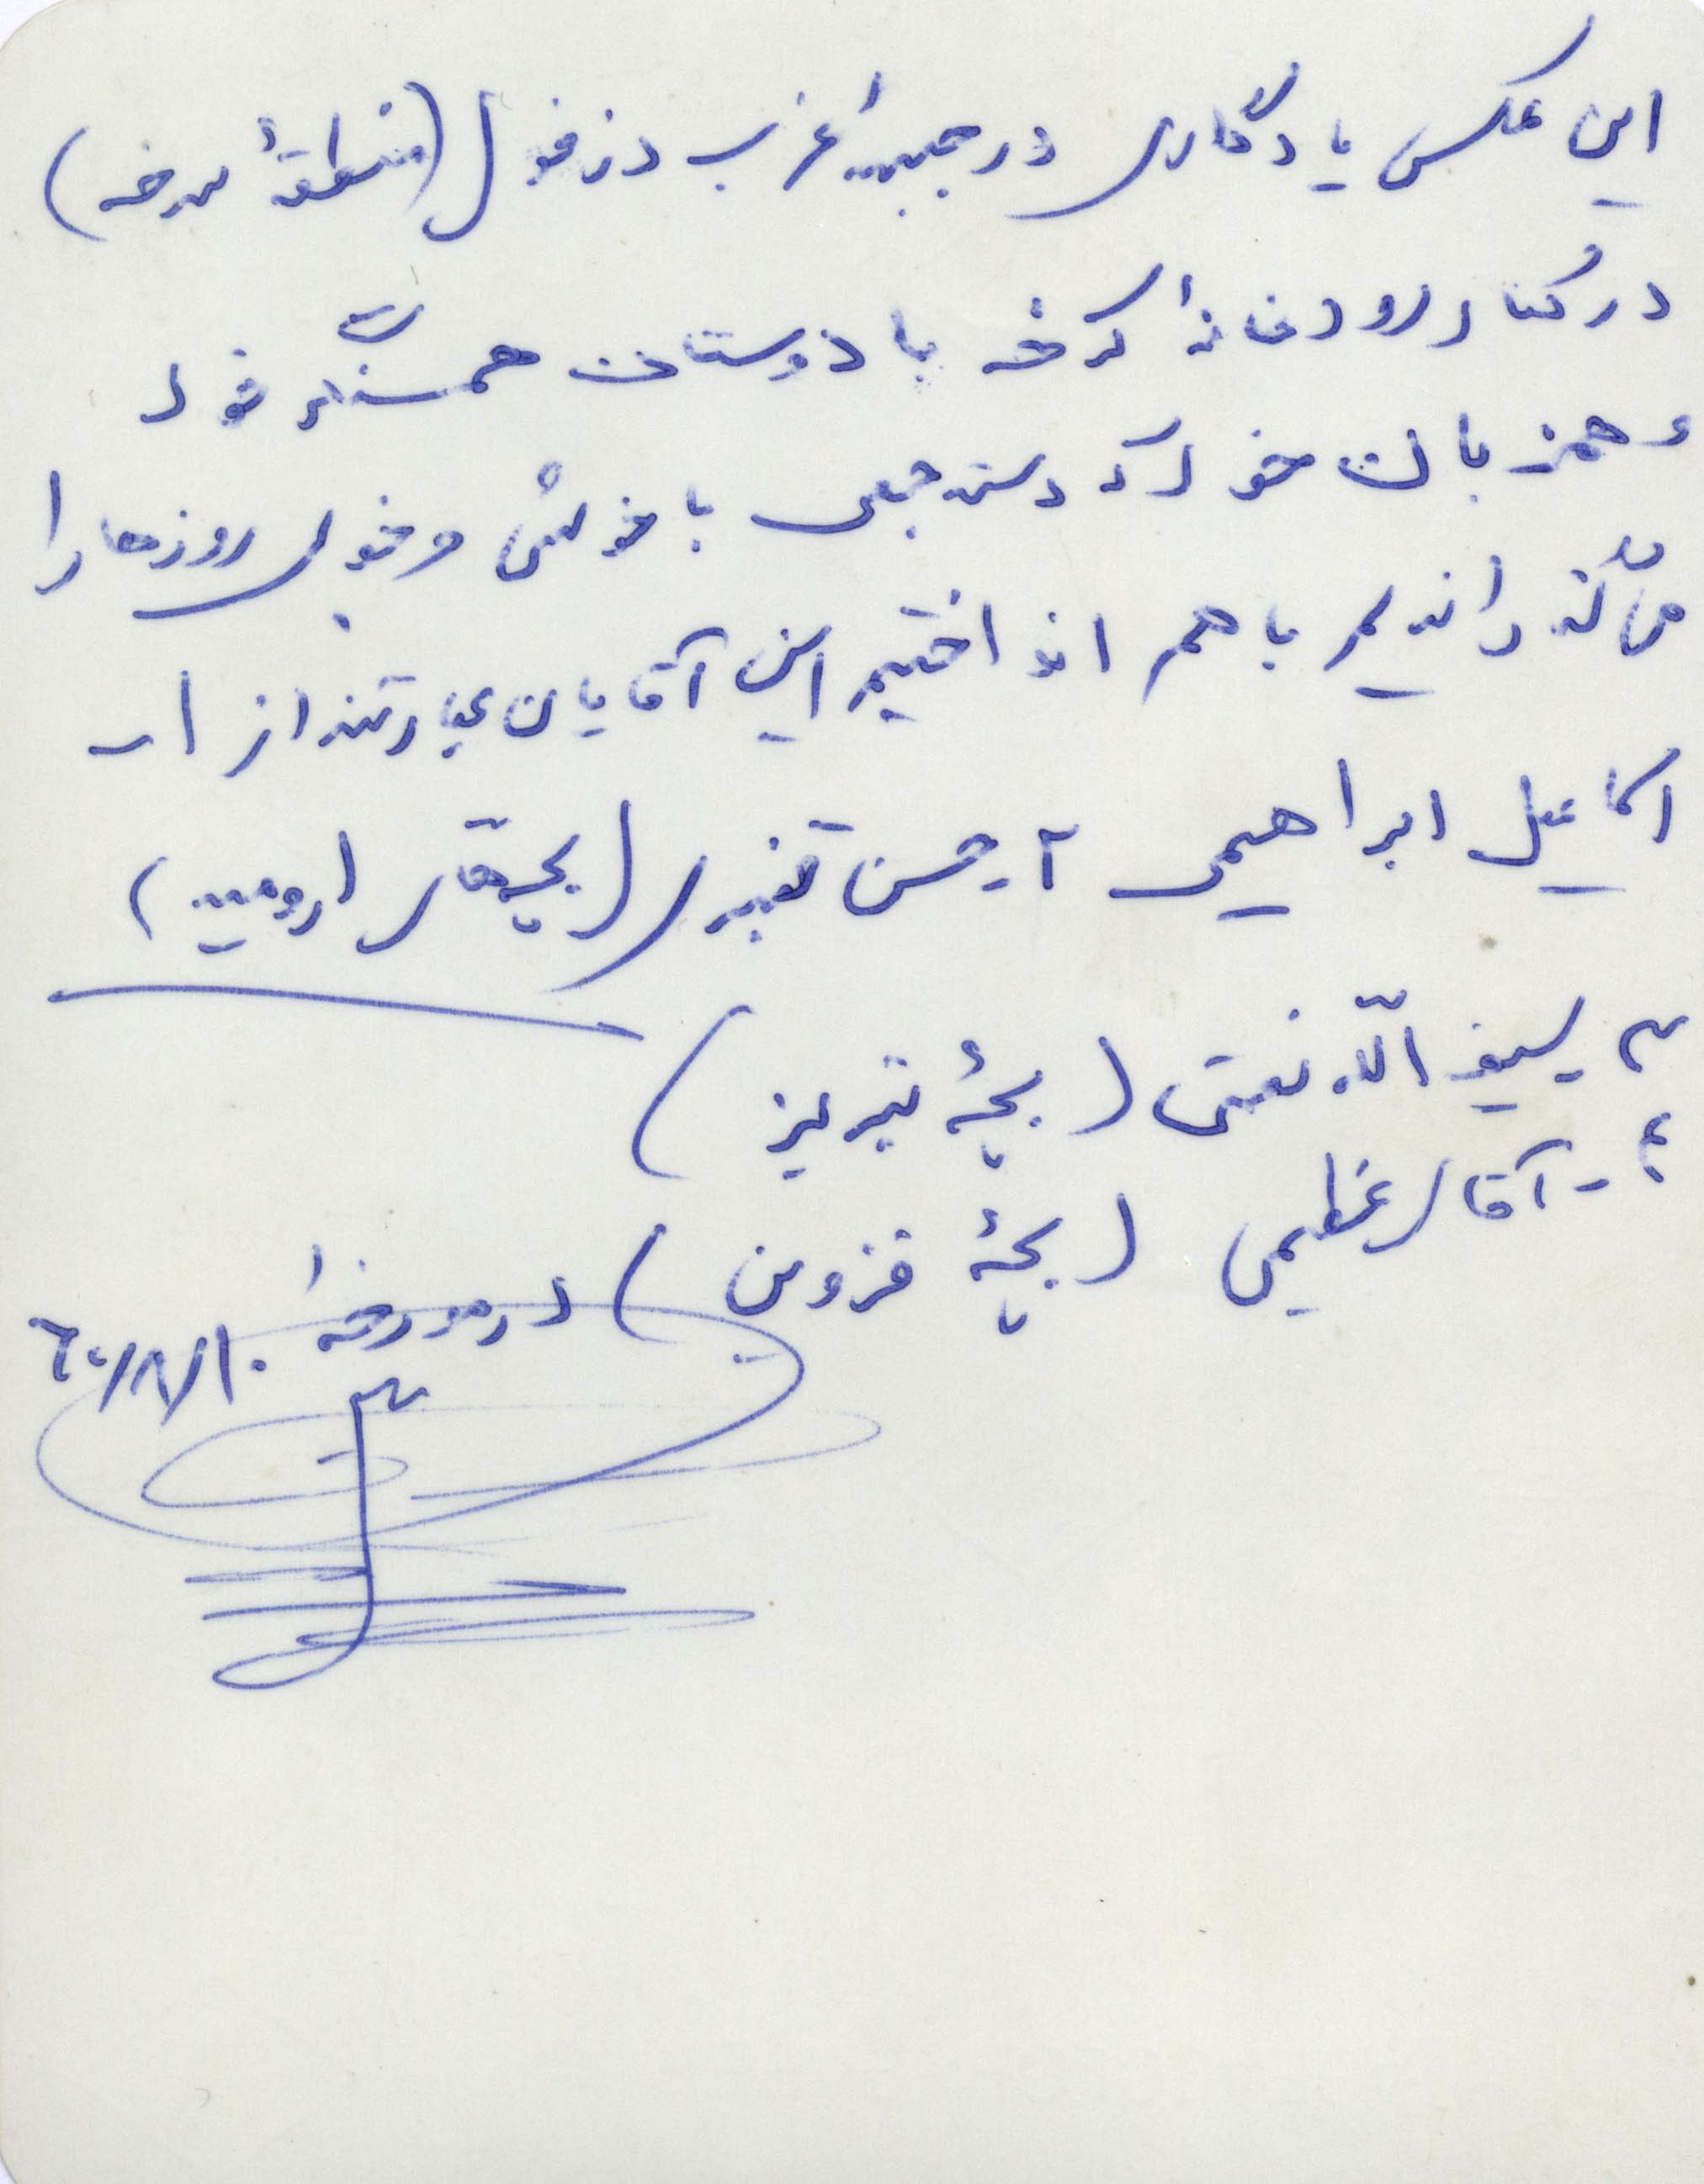 این عکس یادگاری در جبههٔ غرب دزفول (منطقهٔ سرخه)
در کنار رودخانهٔ کرخه با دوستان همسنگر خود
و همزبان خود که دسته جمعی با خوشی و خوبی روزها را
می‌گذراندیم با هم انداختیم این آقایان عبارتند از ۱-
اسماعیل ابراهیمی ۲- حسن قنبری (بچه‌های ارومیه)
۳ سیف اللّه نعمتی (بچهٔ تبریز)
۴- آقای عظیمی (بچهٔ قزوین) در مورخهٔ ۶۰/۸/۱۰